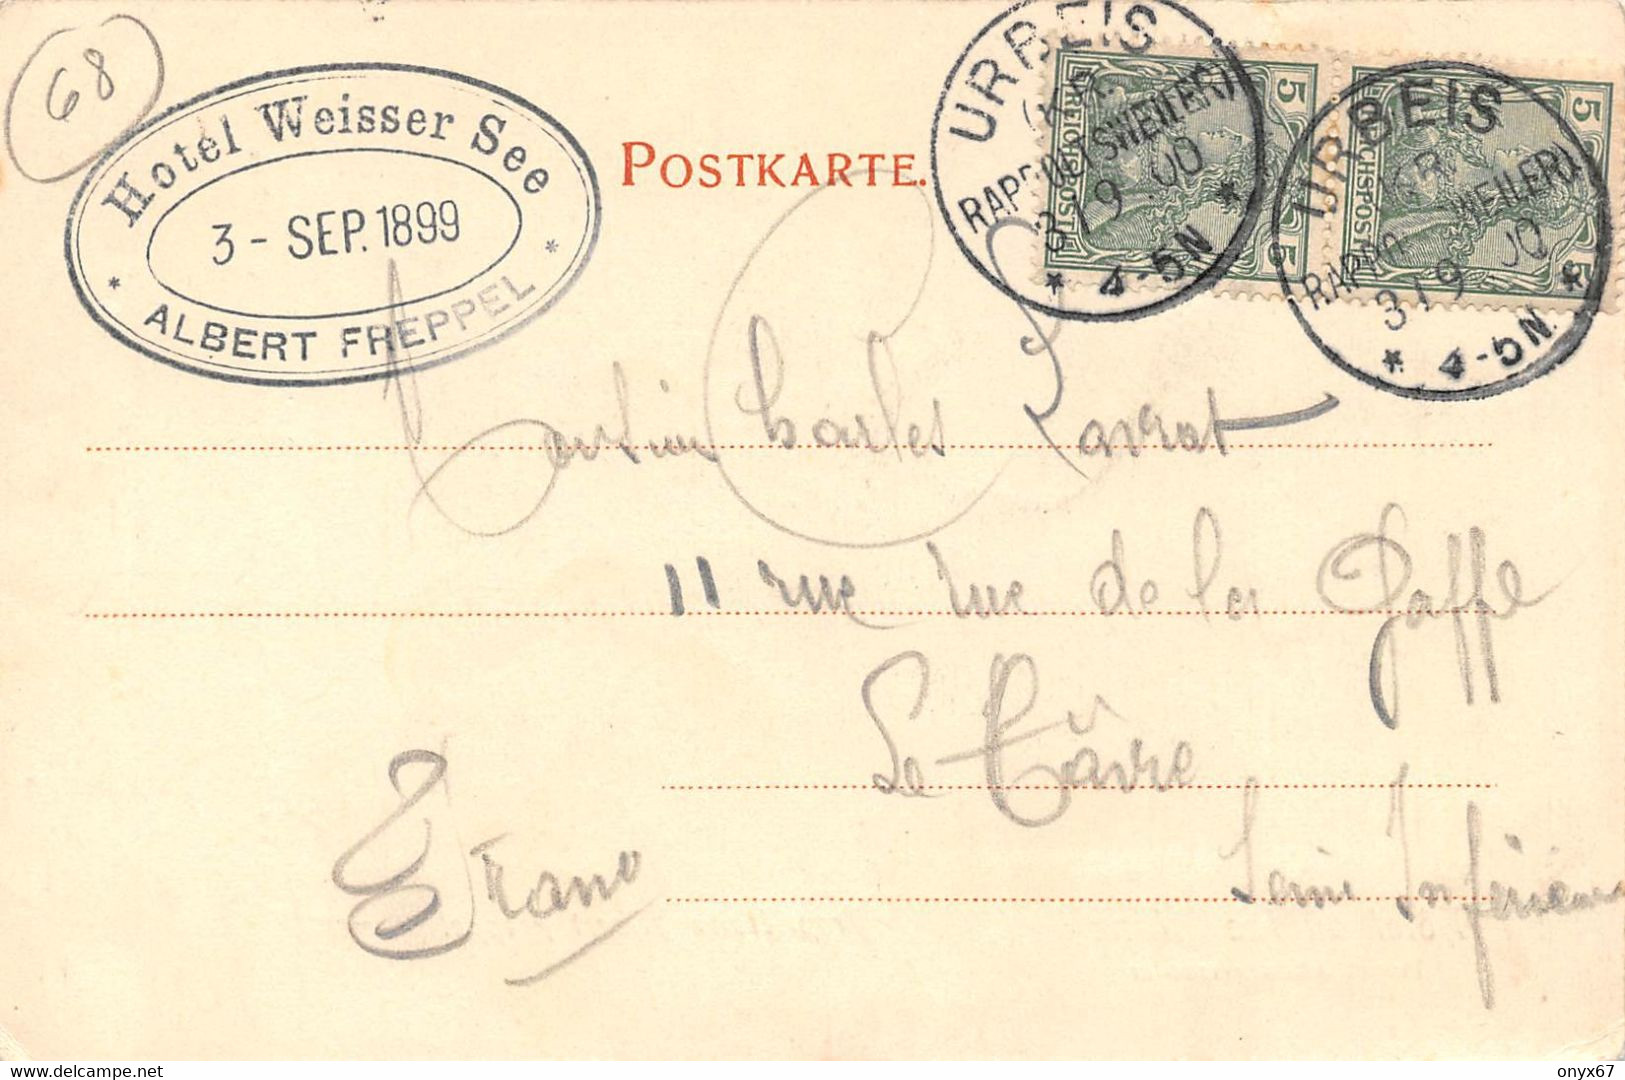 68
Hotel Weisser See
3 - SEP. 1899
* ALBERT FREPPEL *
POSTKARTE.
URBEIS
(KR.
RAPPOLTSWEILER)
3 / 9 00
* 4-5N *
5 5
REICHSPOST
URBEIS
KR.
RAPPO WEILER)
3 / 9 00
* 4-5N. *
5 5
REICHSPOST
Charles
11 rue de la Gaffe
Le Hâvre
Seine Inférieure
France
onyx67